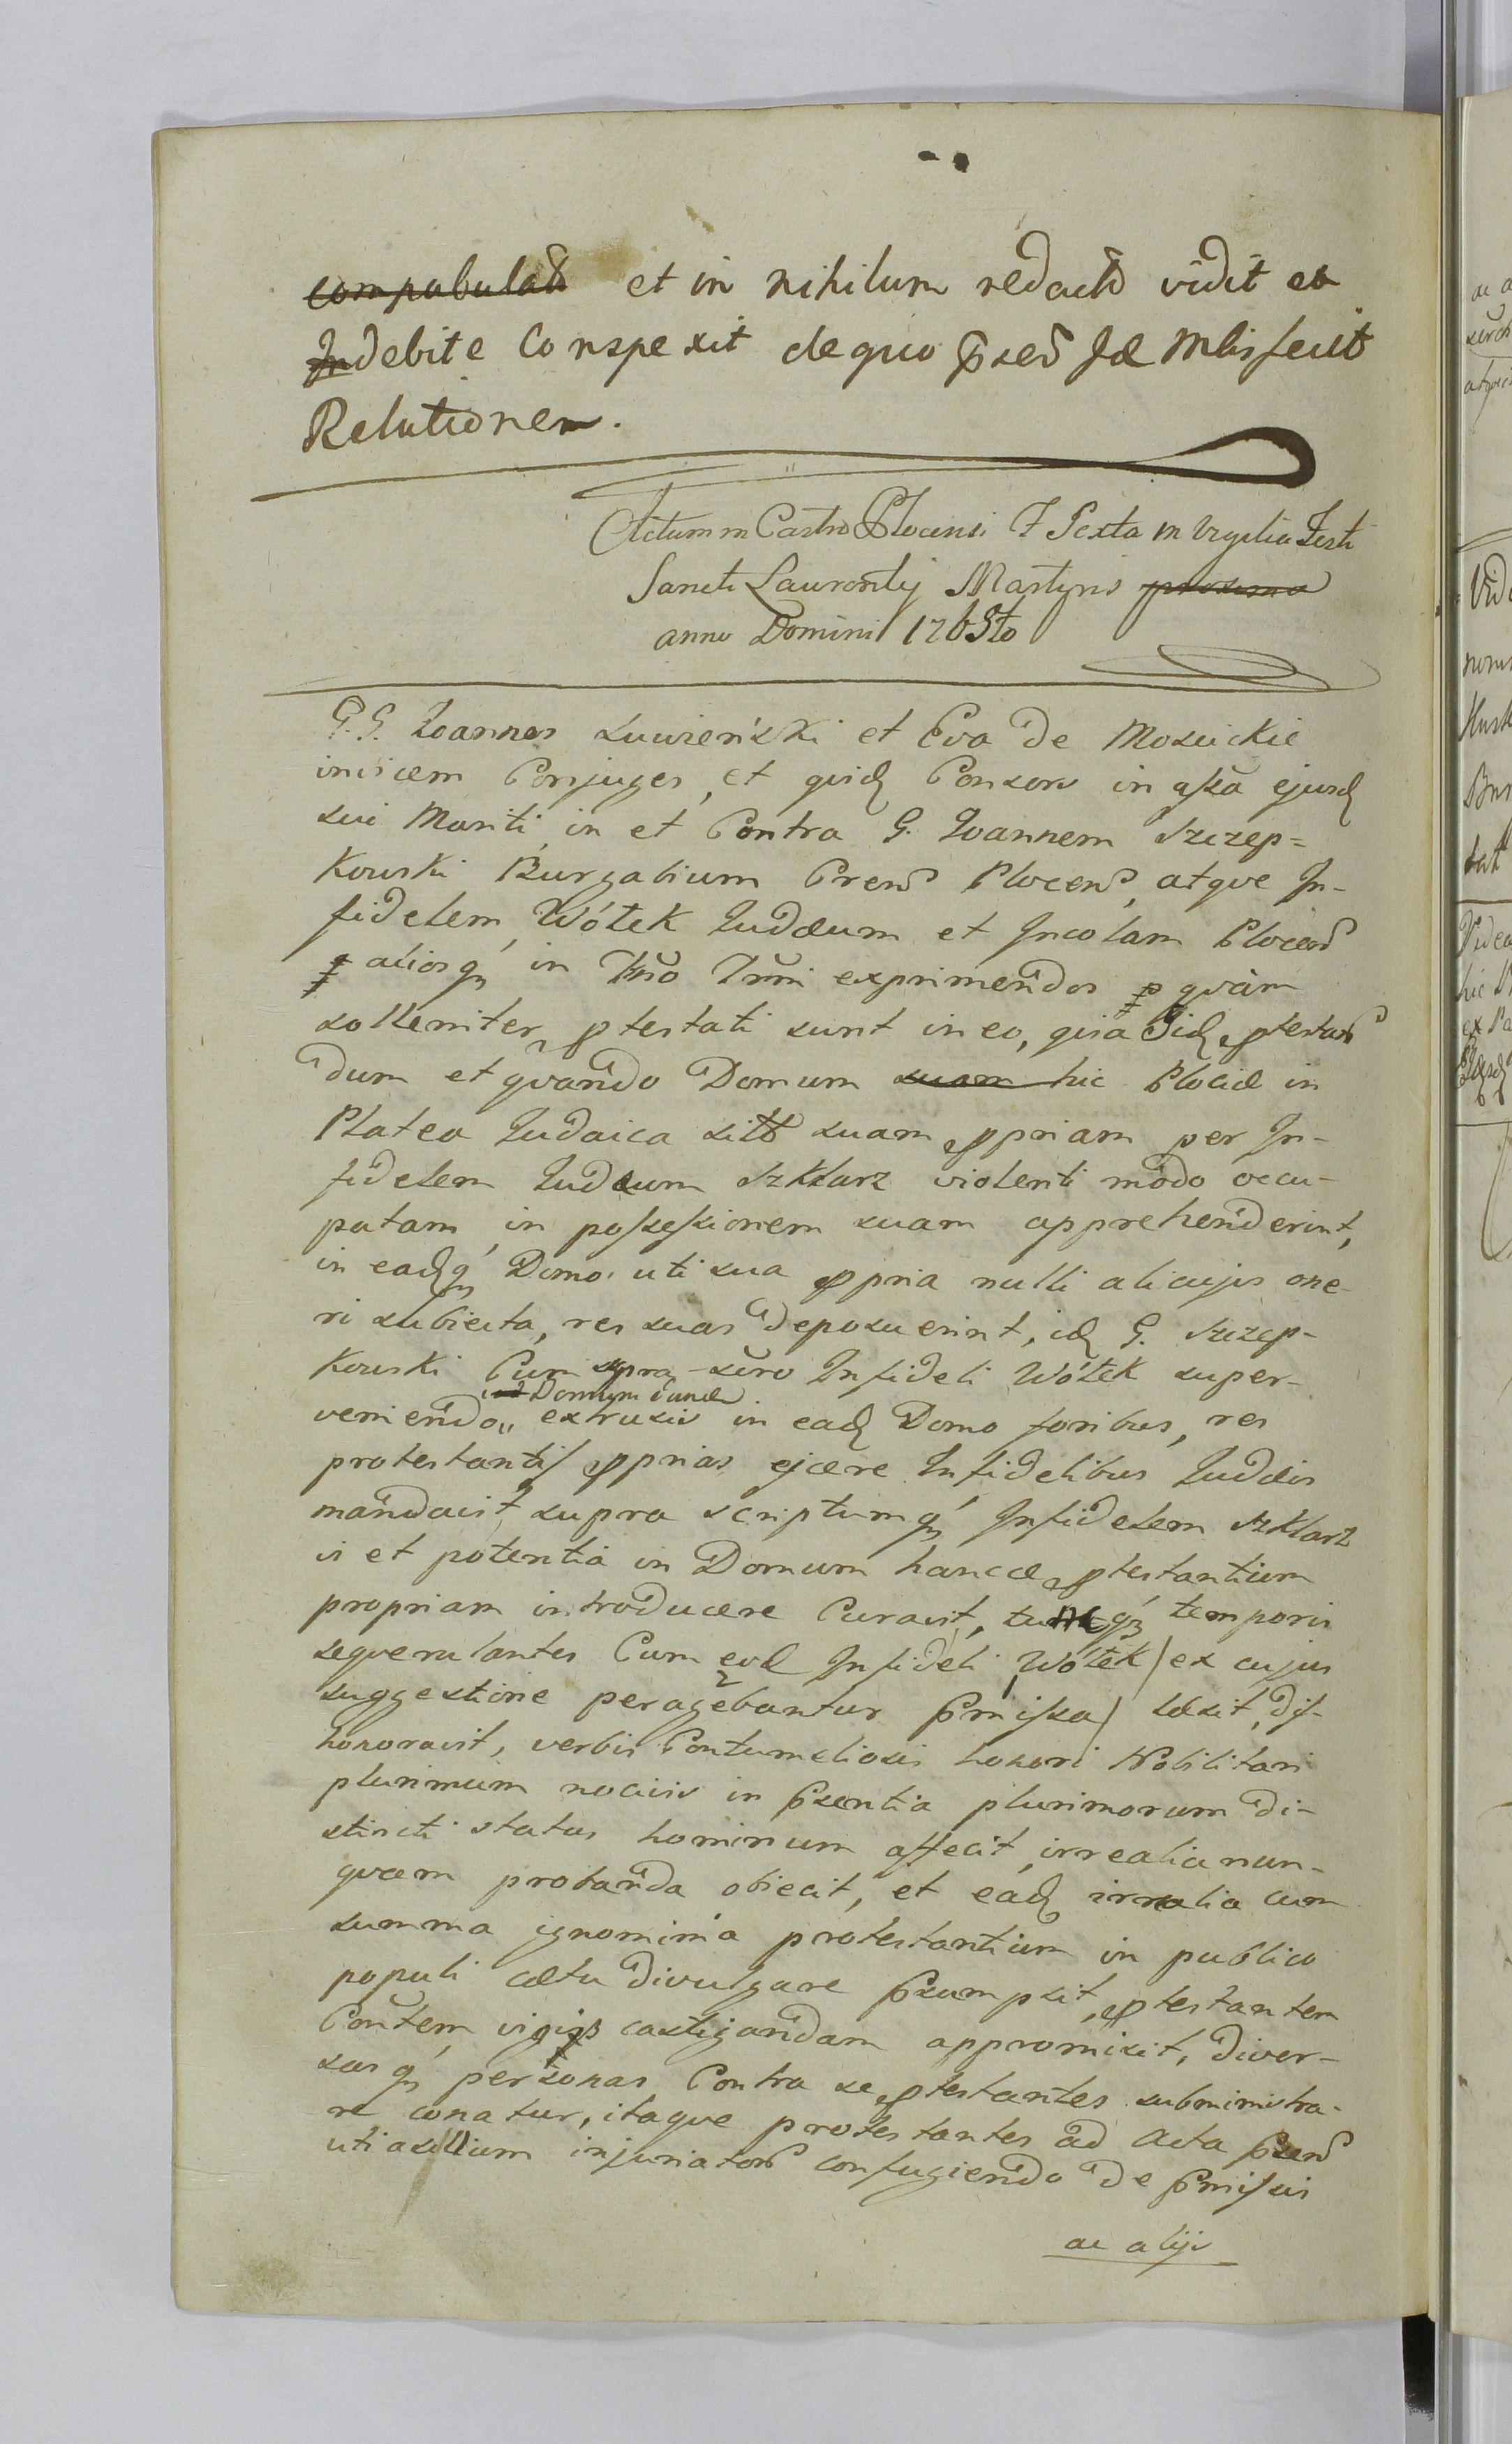 compabulatū et in nihilum redactū vidit et
Indebite Conspexit de quo p̄sens Jdē Mlis fecit
Relationem.
Actum in Castro Plocensi F Sexta in Vigilia Festi
Sancti Laurentij Martyris proxima
anno Domini 1765to
G. G. Joannes Luwieński et Eva de Mosuickie
invicem Conjuges, et quidē Consors in assā ejusdē
sui Mariti, in et Contra G. Joannem Szczep=
kowski Burgabium Crens Plocens, atque In-
fidelem Wółek Judæum et Incolam Plocens
aliosq́ in Tno Trmi exprimendos p quàm
sollemniter ptestati sunt in eo, quia Jidē ptestans
dum et qvando Domum suam hic Plociæ in
Platea Judaica sittā suam ppriam per In-
fidelem Judæum Szklarz violenti modo occu-
patam, in possessionem suam apprehenderint,
in eadēq́ Domo, uti sua ppria nulli alicujus one-
ri subiecta, res suas deposuerint, idē G. Szczep-
kowski Cum supra-scro Infideli Wółek super-
ad Domum eundē
veniendo„ extrusis in eadē Domo foribus, res
protestantis pprias ejcere Infidelibus Judæis
mandavit, supra scriptumq́ Infidelem Szklarz
vi et potentia in Domum hancce ptestantium
propriam introducere Curavit, tuncq́ temporis
sequerulantes Cum eodē Infideli Wółek / ex cujus
suggestione peragebantur Pmissa / læsit, dis-
honoravit, verbis Contumeliosis honori Nobilitari
plurimum nocivis in Psentia plurimorum di-
stincti status hominum affecit, irrealia nun-
quam probanda obiecit, et eadē irrealia cum
summa ignominia protestantium in publico
populi cœtu divulgare Psumpsit, ptestantem
Contem, virgis castigandam appromisit, diver-
sasq́ personas Contra se ptestantes subministra-
re conatur, itaque protestantes ad Acta Psens
uti asillium injuriator confugiendo de Pmissis
ac alijs